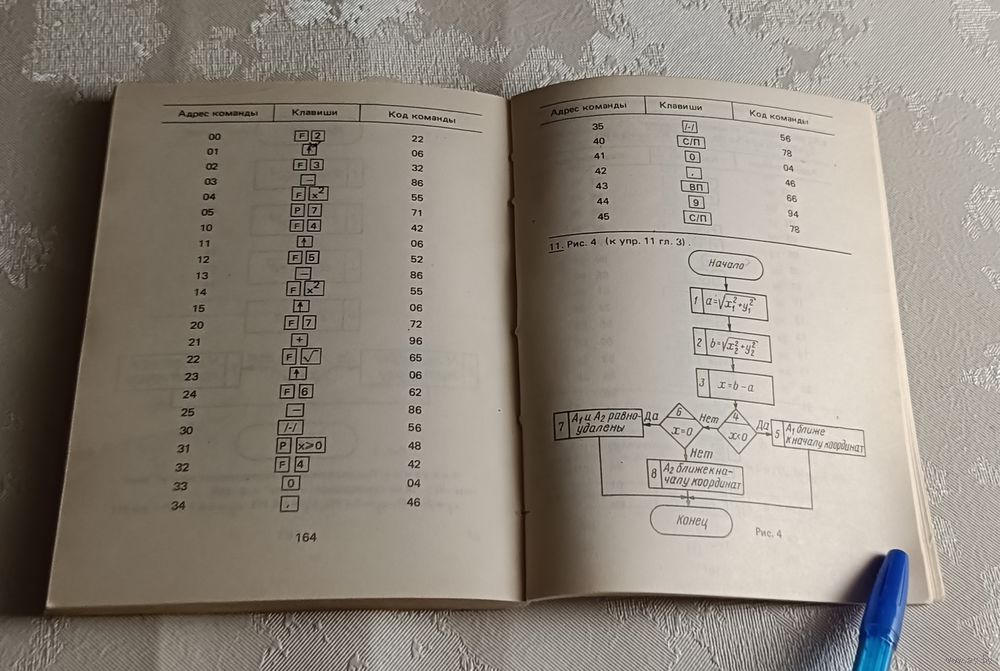 Адрес команды Клавиши Код команды
00 F 2 22
01 ↑ 06
02 F 3 32
03 — 86
04 F x² 55
05 P 7 71
10 F 4 42
11 ↑ 06
12 F 5 52
13 — 86
14 F x² 55
15 ↑ 06
20 F 7 72
21 + 96
22 F √ 65
23 ↑ 06
24 F 6 62
25 — 86
30 /-/ 56
31 P x⩾0 48
32 F 4 42
33 0 04
34 , 46
164
Адрес команды Клавиши Код команды
35 /-/ 56
40 С/П 78
41 0 04
42 , 46
43 ВП 66
44 9 94
45 С/П 78
11. Рис. 4 (к упр. 11 гл. 3).
Начало
1 a=√x₁²+y₁²
2 b=√x₂²+y₂²
3 x=b-a
4
x<0
Да
5 A₁ ближе
к началу координат
Нет
6
x=0
Да
7 A₁ и A₂ равно-
удалены
Нет
8 A₂ ближе к на-
чалу координат
Конец
Рис. 4